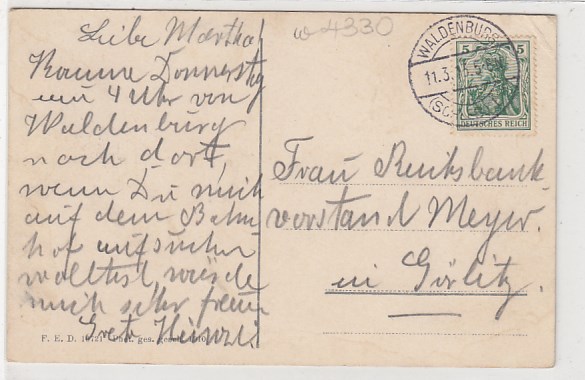 w 4330
Liebe Martha!
Komme Donnerstag
um 4 Uhr von
Waldenburg
nach dort,
wenn Du mich
auf dem Bahn
hof aufsuchen
wolltest, würde
mich sehr freuen
Grete
WALDENBURG
11.3.
(SCHLES.)
5 5
DEUTSCHES REICH
Frau Reichsbank-
vorstand Meyer.
in Görlitz.
F. E. D. Phot. ges. gesch. 1910